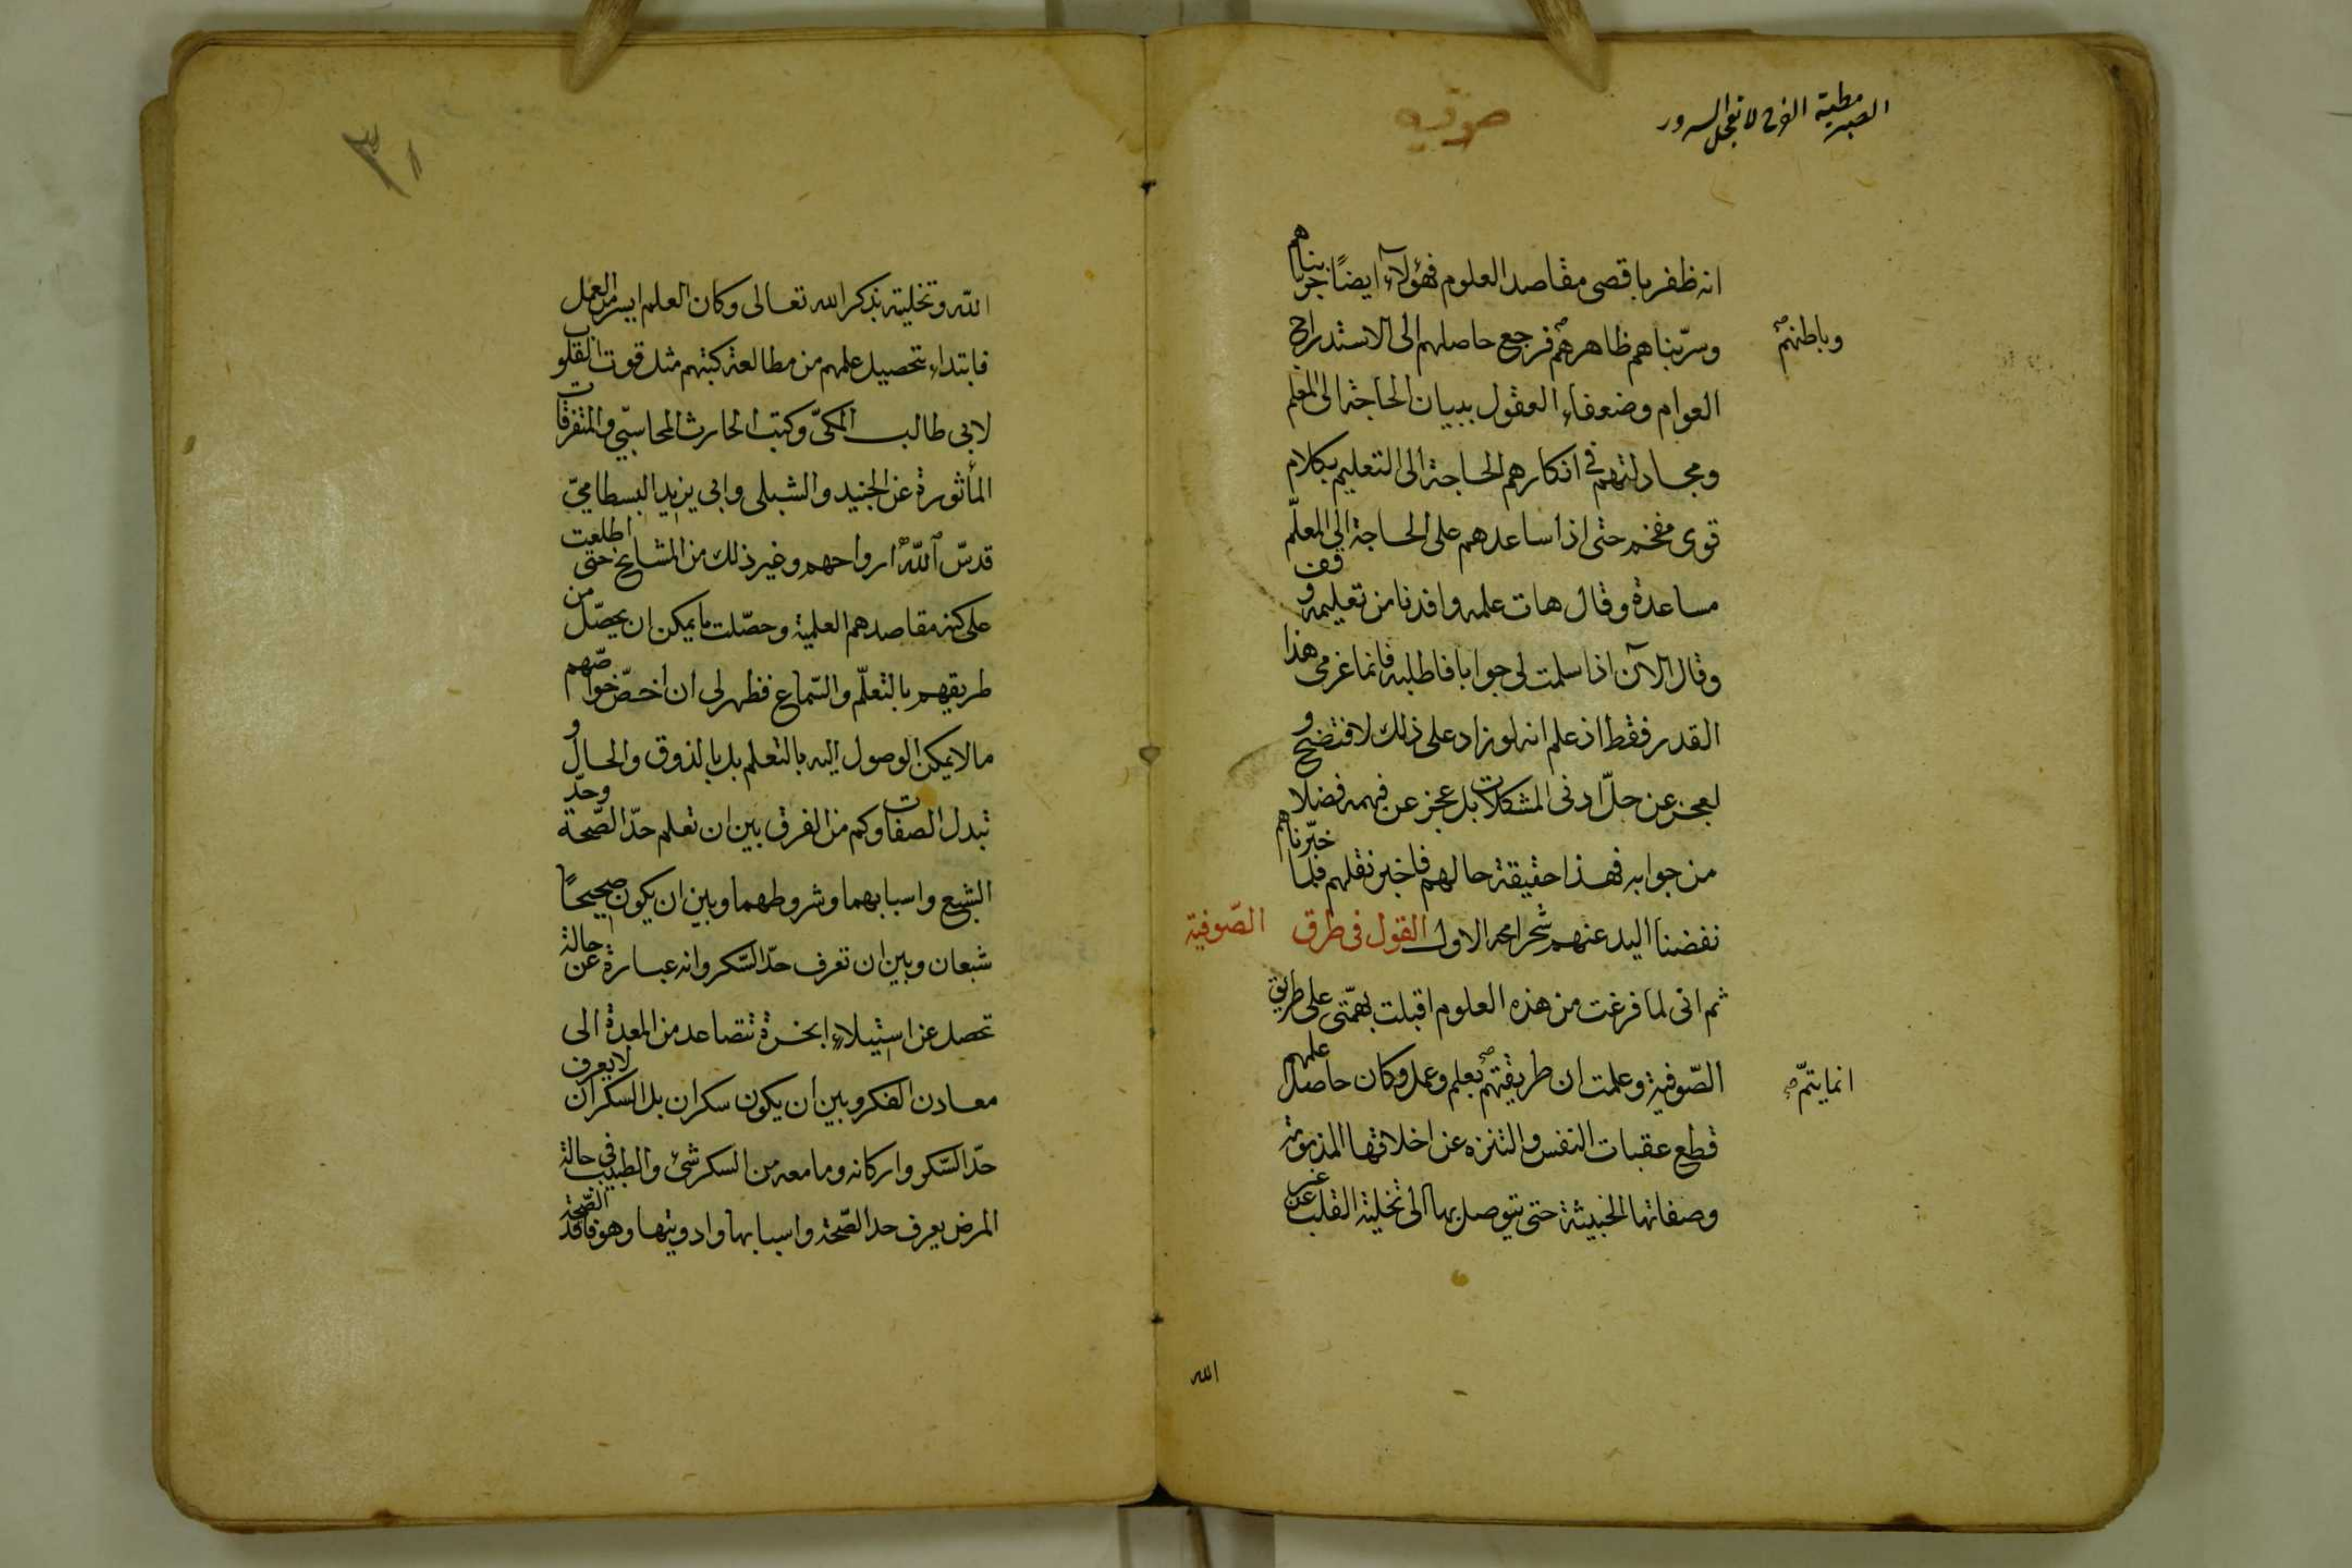 الصبر مطية الفرح لا تعجل السرور
صوفيه
انه ظفر باقصى مقاصد العلوم فهؤلاء ايضًا جربناهم
وسرّبناهم ظاهرهم فرجع حاصلهم الى الاستدراج
وباطنهم صح
العوام وضعفاء العقول ببيان الحاجة الى المعلم
ومجادلتهم فى انكارهم الحاجة الى التعليم بكلام
قوى مفخم حتى اذا ساعدهم على الحاجة الى المعلّم
مساعدة وقال هات علمه وافدنا من تعليمه وقف
وقال الآن اذا سلمت لى جوابا فاطلبه فانما غرمى هذا
القدر فقط اذ علم انه لو زاد على ذلك لافتضح و
لعجز عن حلّ ادنى المشكلات بل عجز عن فهمه فضلا
من جوابه فهذا حقيقة حالهم فاخبر نقلهم فلما خبّرناهم
نفضنا اليد عنهم القول فى طرق الصّوفية
ثم انى لما فرغت من هذه العلوم اقبلت بهمّتى على طريق
الصّوفية وعلمت ان طريقتهم بعلم وعمل وكان حاصل علمهم
انما يتمّ صح
قطع عقبات النفس والتنزه عن اخلاقها المذمومة
وصفاتها الخبيثة حتى يتوصل بها الى تخلية القلب عن غير
الله
٣١
الله وتخليته بذكر الله تعالى وكان العلم ايسر من العمل
فابتداء بتحصيل علمهم من مطالعة كتبهم مثل قوت القلوب
لابى طالب المكىّ وكتب الحارث المحاسبّى والمتفرقات
المأثورة عن الجنيد والشبلى وابى يزيد البسطامىّ
قدسّ الله ارواحهم وغير ذلك من المشايخ حتى اطلعت
على كنه مقاصدهم العلمية وحصّلت ما يمكن ان يحصّل من
طريقهم بالتعلّم والسّماع فظهر لى ان اخصّ خواصّهم
ما لا يمكن الوصول اليه بالتعلم بل بالذوق والحال و
تبدل الصفات وكم من الفرق بين ان تعلم حدّ الصّحة وحدّ
الشبع واسبابهما وشروطهما وبين ان يكون صحيحًا
شبعان وبين ان تعرف حدّ السّكر وانه عبارة عن حالة
تحصل عن استيلاء ابخرة تتصاعد من المعدة الى
معادن الفكر وبين ان يكون سكران بل السكران لا يعرف
حدّ السّكر واركانه وما معه من السكر شئ والطبيب فى حالة
المرض يعرف حد الصّحة واسبابها وادويتها وهو فاقد الصّحة